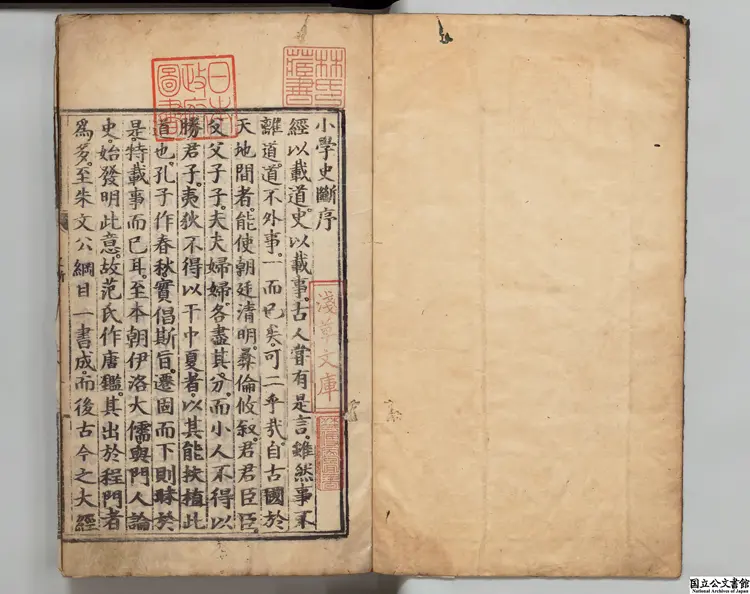 小學史斷序
經以載道。史以載事。古人嘗有是言。雖然事不
離道。道不外事。一而已矣。可二乎哉。自古國於
天地間者。能使朝廷清明。彝倫攸叙。君君臣臣。
父父子子。夫夫婦婦。各盡其分。而小人不得以
勝君子。夷狄不得以干中夏者。以其能扶植此
道也。孔子作春秋。實倡斯旨。遷固而下則昧於
是。特載事而已耳。至本朝伊洛大儒與門人論
史。始發明此意。故范氏作唐鑑。其出於程門者
爲多。至朱文公綱目一書成。而後古今之大經
林氏
藏書
日本
政府
圖書
淺草文庫
国立公文書館
National Archives of Japan